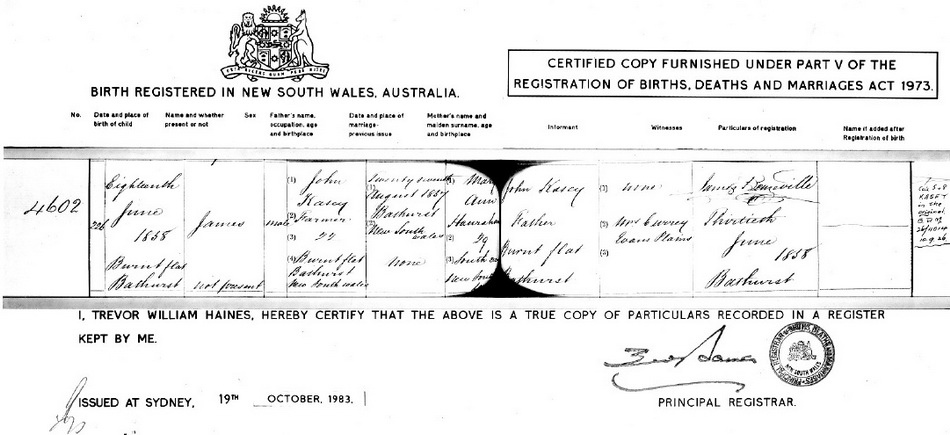 BIRTH REGISTERED IN NEW SOUTH WALES, AUSTRALIA.
CERTIFIED COPY FURNISHED UNDER PART V OF THE
REGISTRATION OF BIRTHS, DEATHS AND MARRIAGES ACT 1973.
No.
Date and place of
birth of child
Name and whether
present or not
Sex
Father's name,
occupation, age
and birthplace
Date and place of
marriage-
previous issue
Mother's name and
maiden surname, age
and birthplace
Informant
Witnesses
Particulars of registration
Name if added after
Registration of birth
4602
226
Eighteenth
June
1858
Burnt flat
Bathurst
James
not present
male
(1) John
Kasey
(2) Farmer
(3) 22
(4) Burnt flat
Bathurst
New South wales
(1)
August 1857
Bathurst
New South
wales
(2)
none
(1) Mary
Ann
(2)
(3) South
New South
John Kasey
Father
Burnt flat
Bathurst
(1) none
(2) Mrs
Evans Plains
(3)
Thirtieth
June
1858
Bathurst
KASEY
in the
original
I, TREVOR WILLIAM HAINES, HEREBY CERTIFY THAT THE ABOVE IS A TRUE COPY OF PARTICULARS RECORDED IN A REGISTER
KEPT BY ME.
ISSUED AT SYDNEY, 19TH OCTOBER, 1983.
PRINCIPAL REGISTRAR.